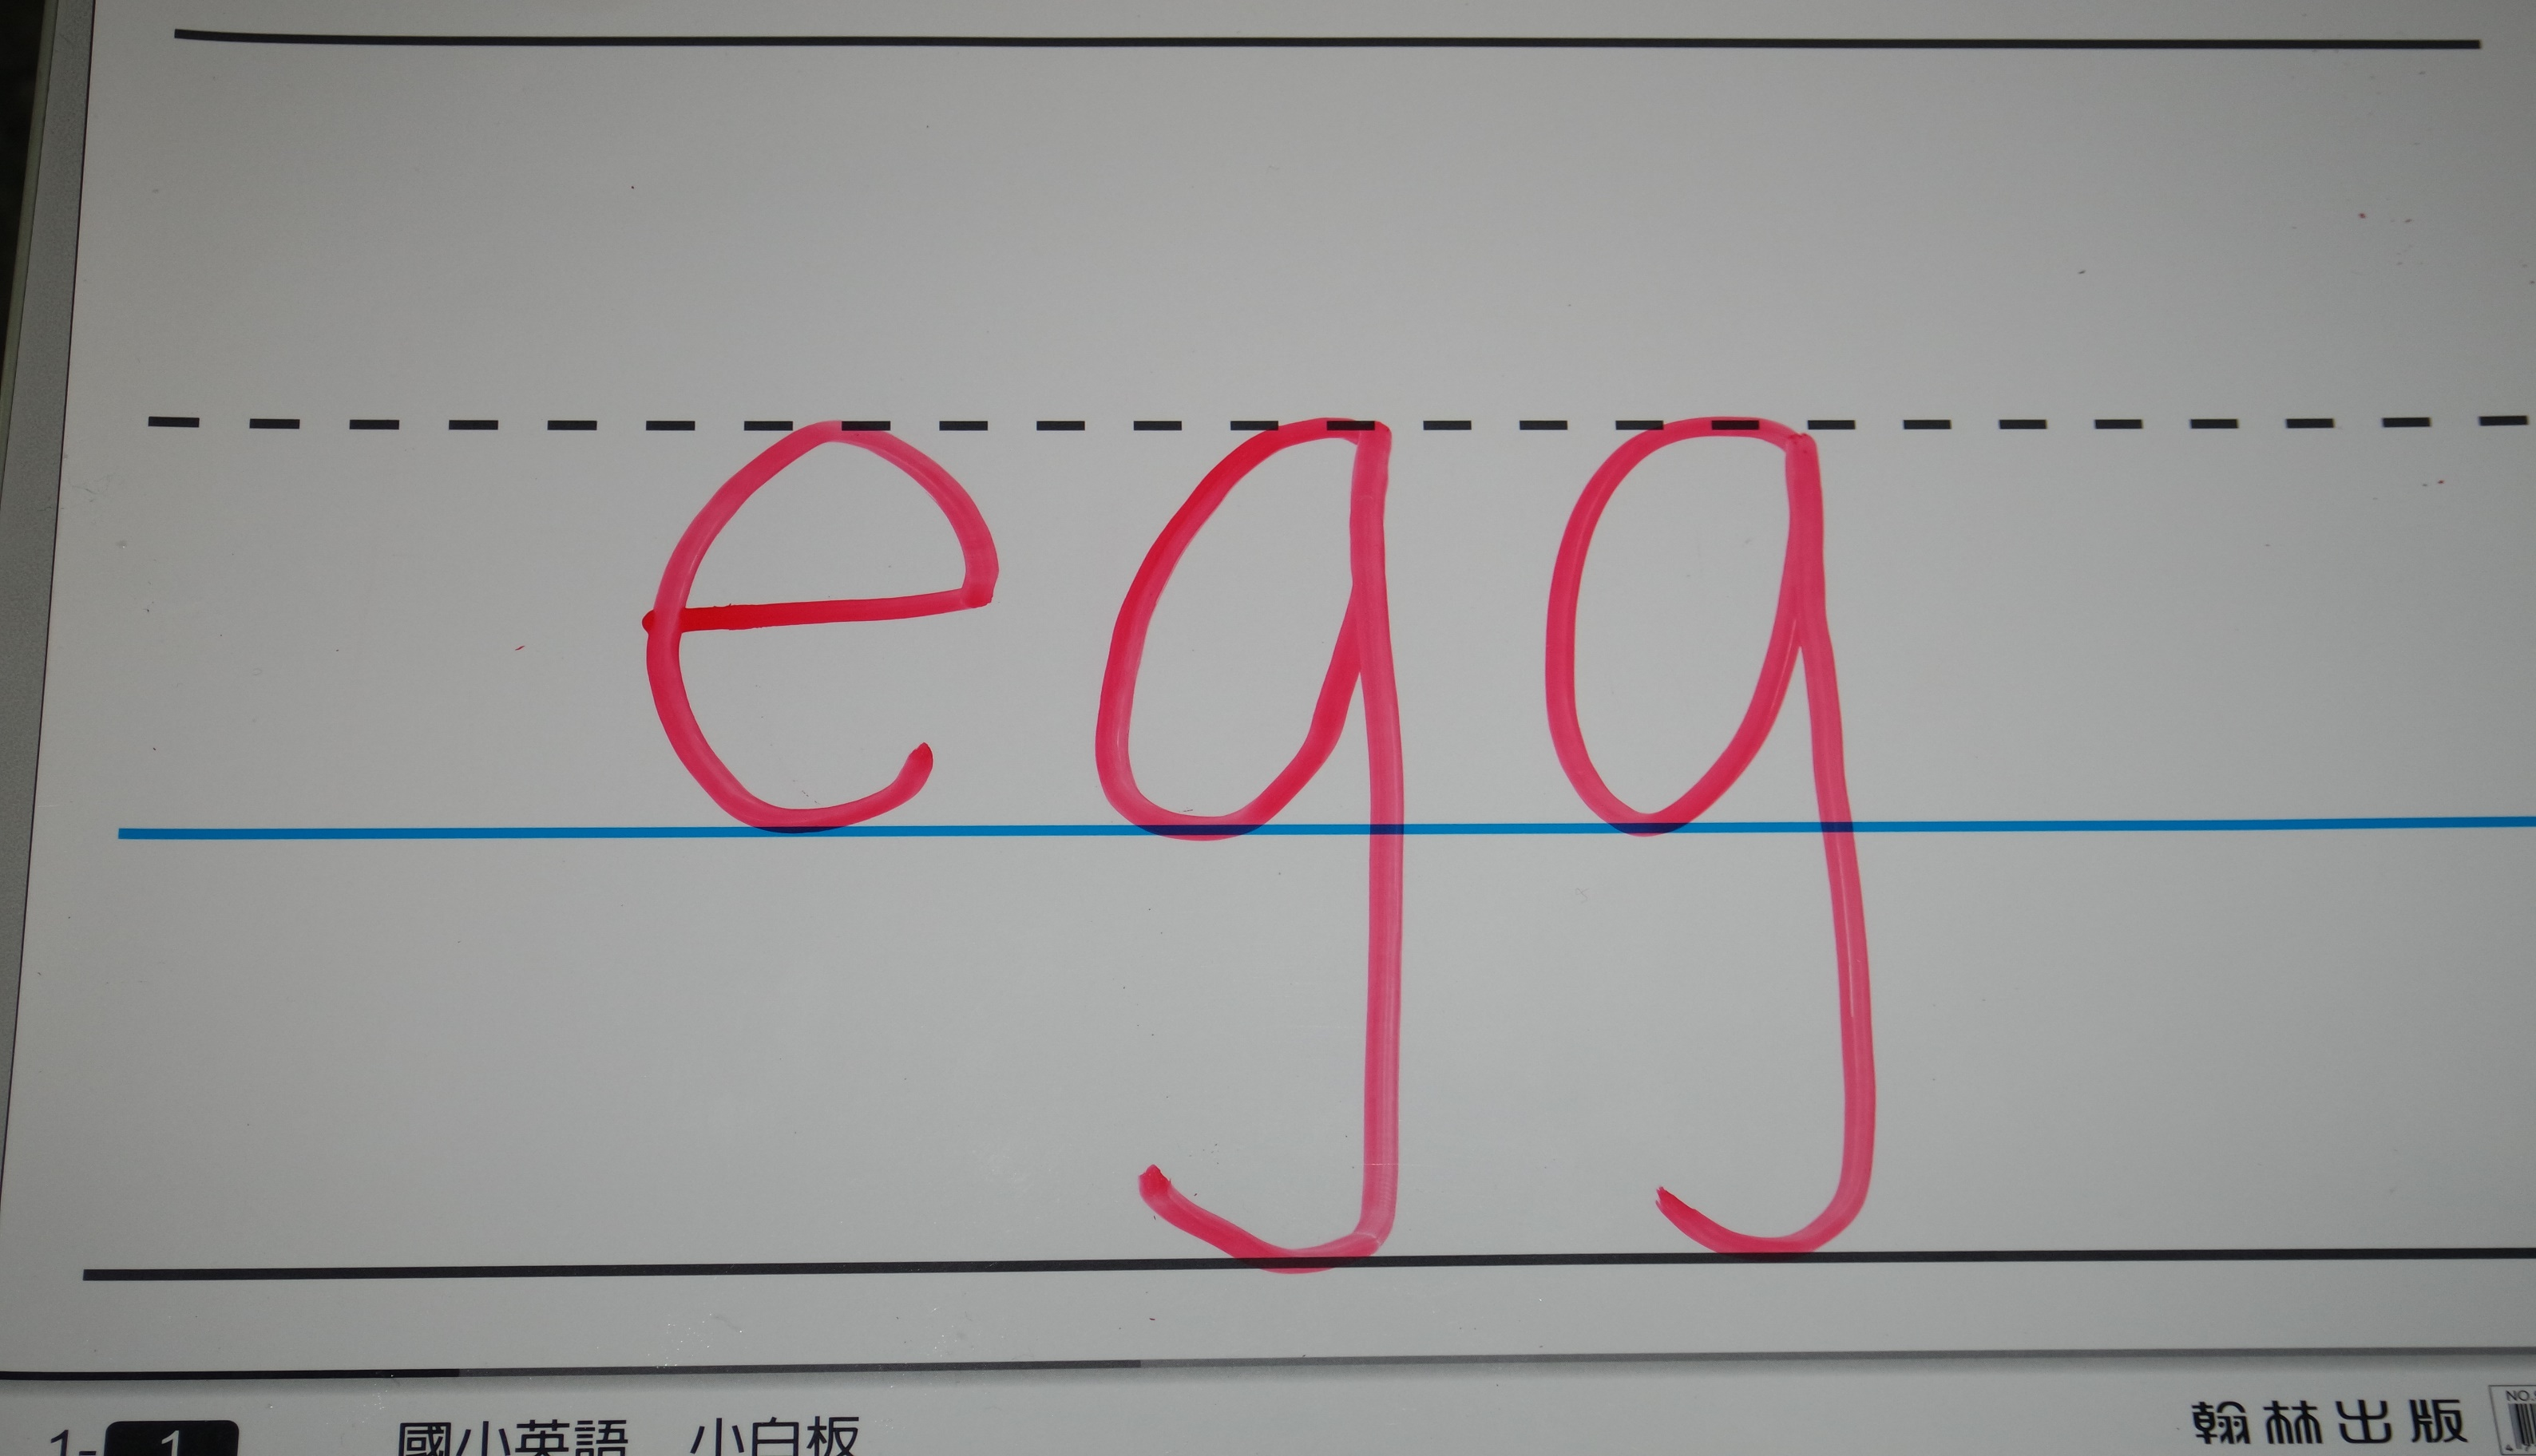 egg
1-1 國小英語 小白板 翰林出版 NO.